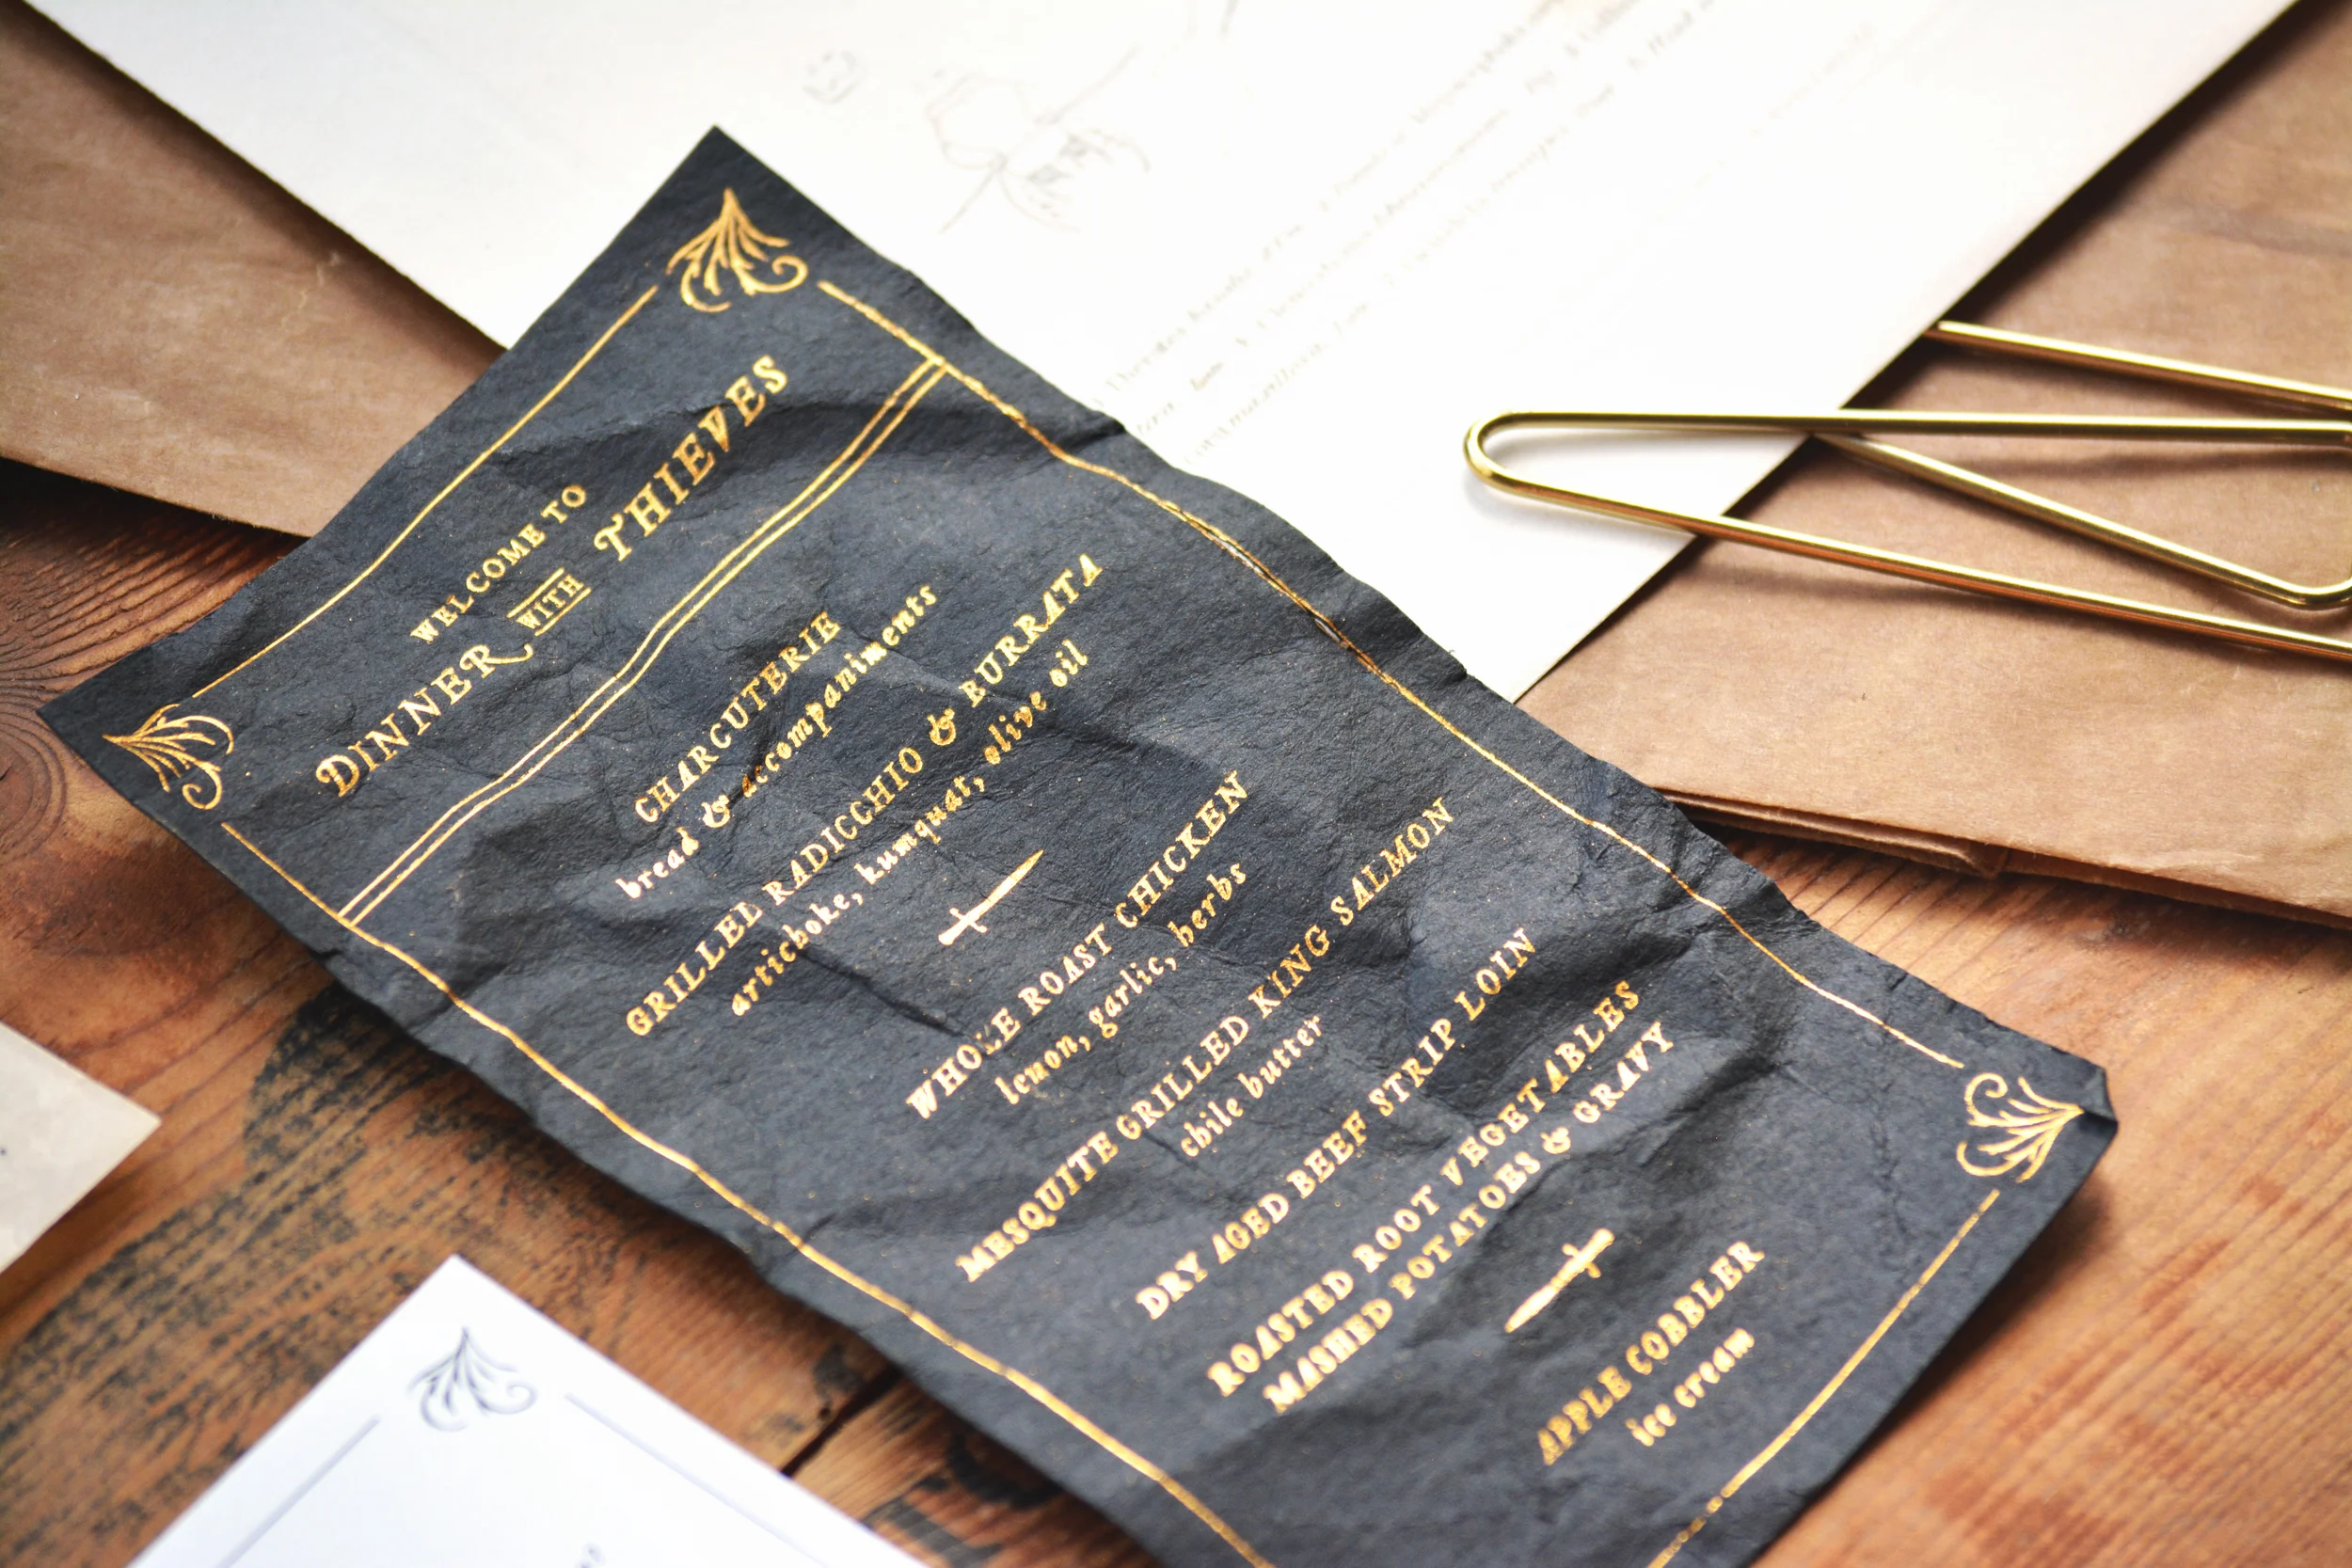 WELCOME TO
DINNER WITH THIEVES
CHARCUTERIE
bread & accompaniments
GRILLED RADICCHIO & BURRATA
artichoke, kumquat, olive oil
WHOLE ROAST CHICKEN
lemon, garlic, herbs
MESQUITE GRILLED KING SALMON
chile butter
DRY AGED BEEF STRIP LOIN
ROASTED ROOT VEGETABLES
MASHED POTATOES & GRAVY
APPLE COBBLER
ice cream